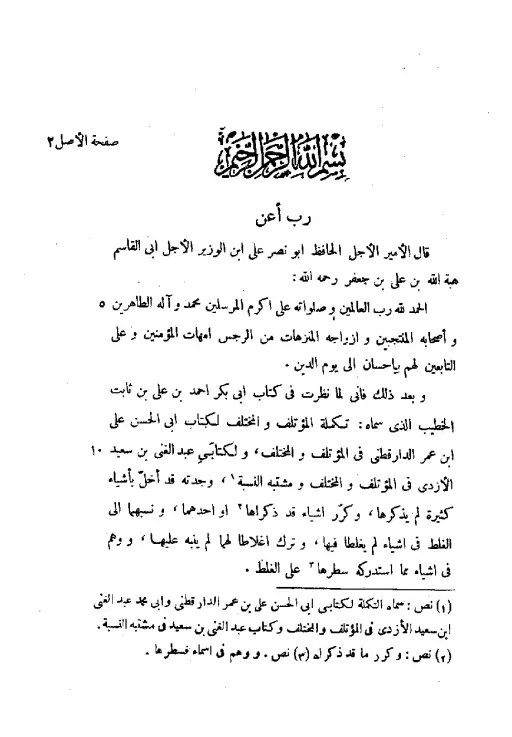 صفحة الأصل ٢
بسم الله الرحمن الرحيم
رب أعن
قال الأمير الأجل الحافظ ابو نصر على ابن الوزير الأجل ابى القاسم
هبة الله بن على بن جعفر رحمه الله :
الحمد لله رب العالمين و صلواته على اكرم المرسلين محمد و آله الطاهرين ٥
و أصحابه المنتجبين و ازواجه المنزهات من الرجس امهات المؤمنين و على
التابعين لهم بإحسان الى يوم الدين .
و بعد ذلك فانى لما نظرت فى كتاب ابى بكر احمد بن على بن ثابت
الخطيب الذى سماه : تكملة المؤتلف و المختلف لكتاب ابى الحسن على
ابن عمر الدارقطنى فى المؤتلف و المختلف ، و لكتابَى عبد الغنى بن سعيد ١٠
الأزدى فى المؤتلف و المختلف و مشتبه النسبة ١ ، وجدته قد أخلّ بأشياء
كثيرة لم يذكرها ، و كرّر اشياء قد ذكراها ٢ او احدهما ، و نسبهما الى
الغلط فى اشياء لم يغلطا فيها ، و ترك اغلاطا لهما لم ينبه عليها ، و وهم
فى اشياء مما استدركه سطرها ٣ على الغلط .
(١) نص : سماه التكلة لكتابى ابى الحسن على بن عمر الدارقطنى وابى محمد عبد الغنى
ابن سعيد الأزدى فى المؤتلف والمختلف وكتاب عبد الغنى بن سعيد فى مشتبه النسبة .
(٢) نص : و كرر ما قد ذكراه (٣) نص . و وهم فى اسماء فسطرها .